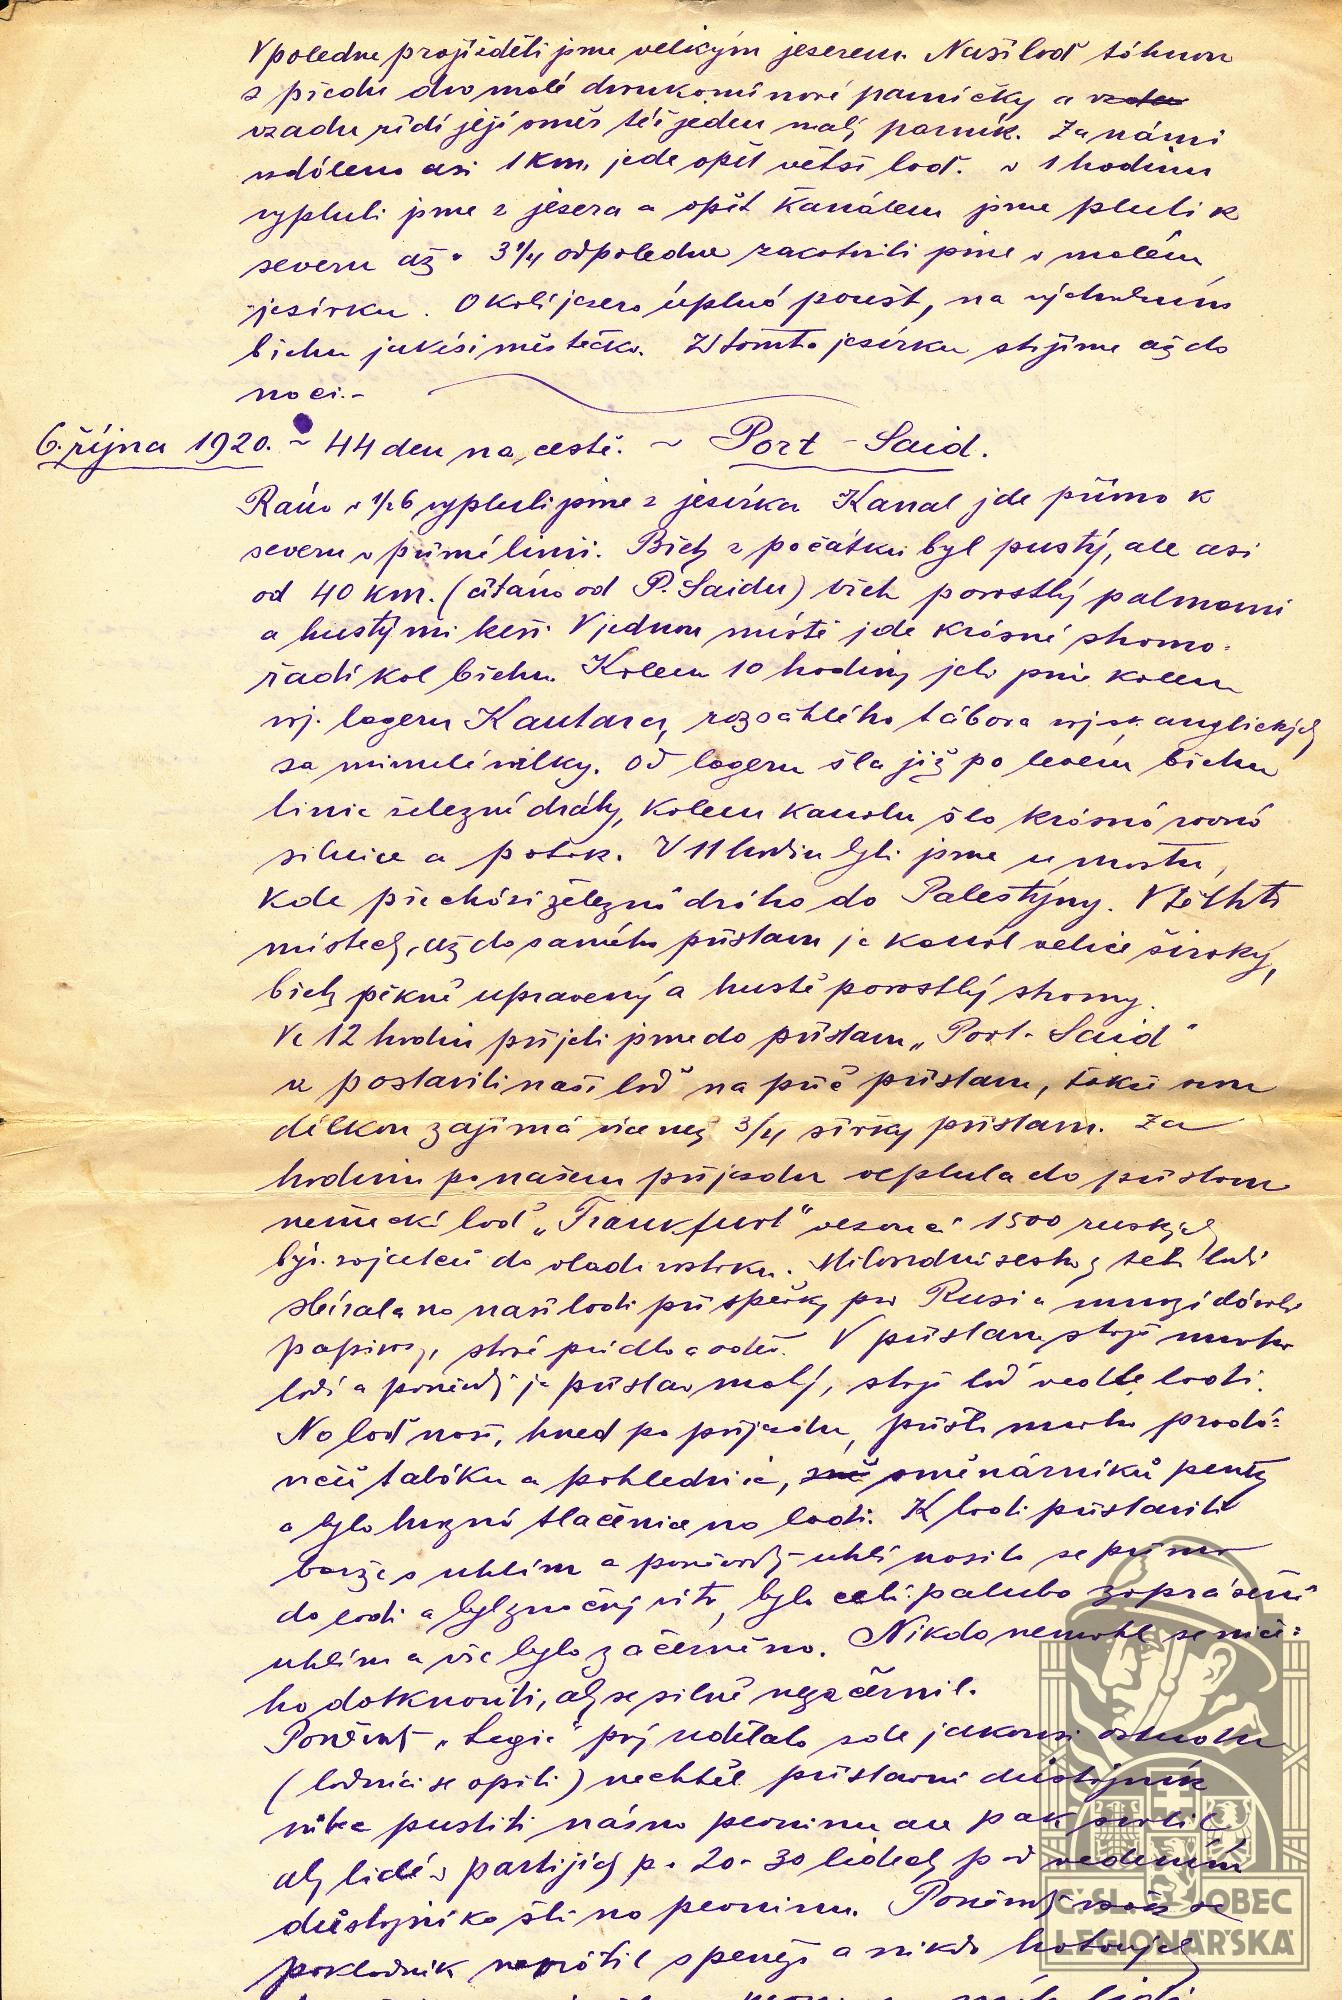 V poledne projížděli jsme velikým jezerem. Naši loď táhnou
z předu dva malé dvoukomínové parníčky a
vzadu řídí její směr též jeden malý parník. Za námi
vzdáleno asi 1 Km. jede opět větší loď. v 1 hodinu
vypluli jsme z jezera a opět Kanálem jsme pluli k
severu až v 3 1/4 odpoledne zakotvili jsme v malém
jezírku. Okolí jezera úplná poušť, na východním
břehu jakési městečko. V tomto jezírku stojíme až do
noci.-
6. října 1920. ~ 44 den na cestě. ~ Port-Said.
Ráno v 1/2 6 vypluli jsme z jezírka Kanal jde přímo k
severu v přímé linii. Břeh z počátku byl pustý, ale asi
od 40 Km. (čítáno od P. Saidu) břeh porostlý palmami
a hustými keři. V jednom místě jde krásné stromo-
řadí kol břehu. Kolem 10 hodiny jeli jsme kolem
voj. lageru Kantara, rozsáhlého tábora vojsk anglických
za minulé války. Od lageru šla již po levém břehu
linie železné dráhy, kolem kanálu šla krásná rovná
silnice a potok. V 11 hodin byli jsme u mostu,
kde přechází železná dráha do Palestýny. V těchto
místech, až do samého přístavu je kanál velice široký,
břeh pěkně upravený a hustě porostlý stromy.
Ve 12 hodin přijeli jsme do přístavu „Port-Said"
a postavili naši loď na příč přístavu, takže svou
délkou zajímá více než 3/4 šířky přístavu. Za
hodinu po našem příjezdu veplula do přístavu
německá loď „Frankfurt" vezoucí 1500 ruských
býv. zajatců do Vladivostoku. Milosrdné sestry z této lodi
sbírala na naší lodi příspěvky pro Rusi a mnozí dávali
papirosy, staré prádlo a oděv. V přístavu stojí mnoho
lodí a poněvadž je přístav malý, stojí loď vedle lodi.
Na loď naši, hned po příjezdu, přišlo mnoho prodá-
vačů tabáku a pohlednic, směnárníků peněz
a byla hrozná tlačenice na lodi. K lodi přistavili
barže s uhlím a poněvadž uhlí nosilo se přímo
do lodi a byl značný vítr, byla celá paluba zaprášená
uhlím a vše bylo začerněno. Nikdo nemohl se niče-
ho dotknouti, aby se silně nezačernil.
Poněvadž „Legie" prý udělala zde jakousi ostudu
(lodníci se opili) nechtěl přístavní důstojník
nikoho pustiti na pevninu ale pak svolil
aby lidé v partijích po 20-30 lidech pod vedením
důstojníka šli na pevninu. Poněvadž se
pokladník nevrátil s penězi a nikdo hotových